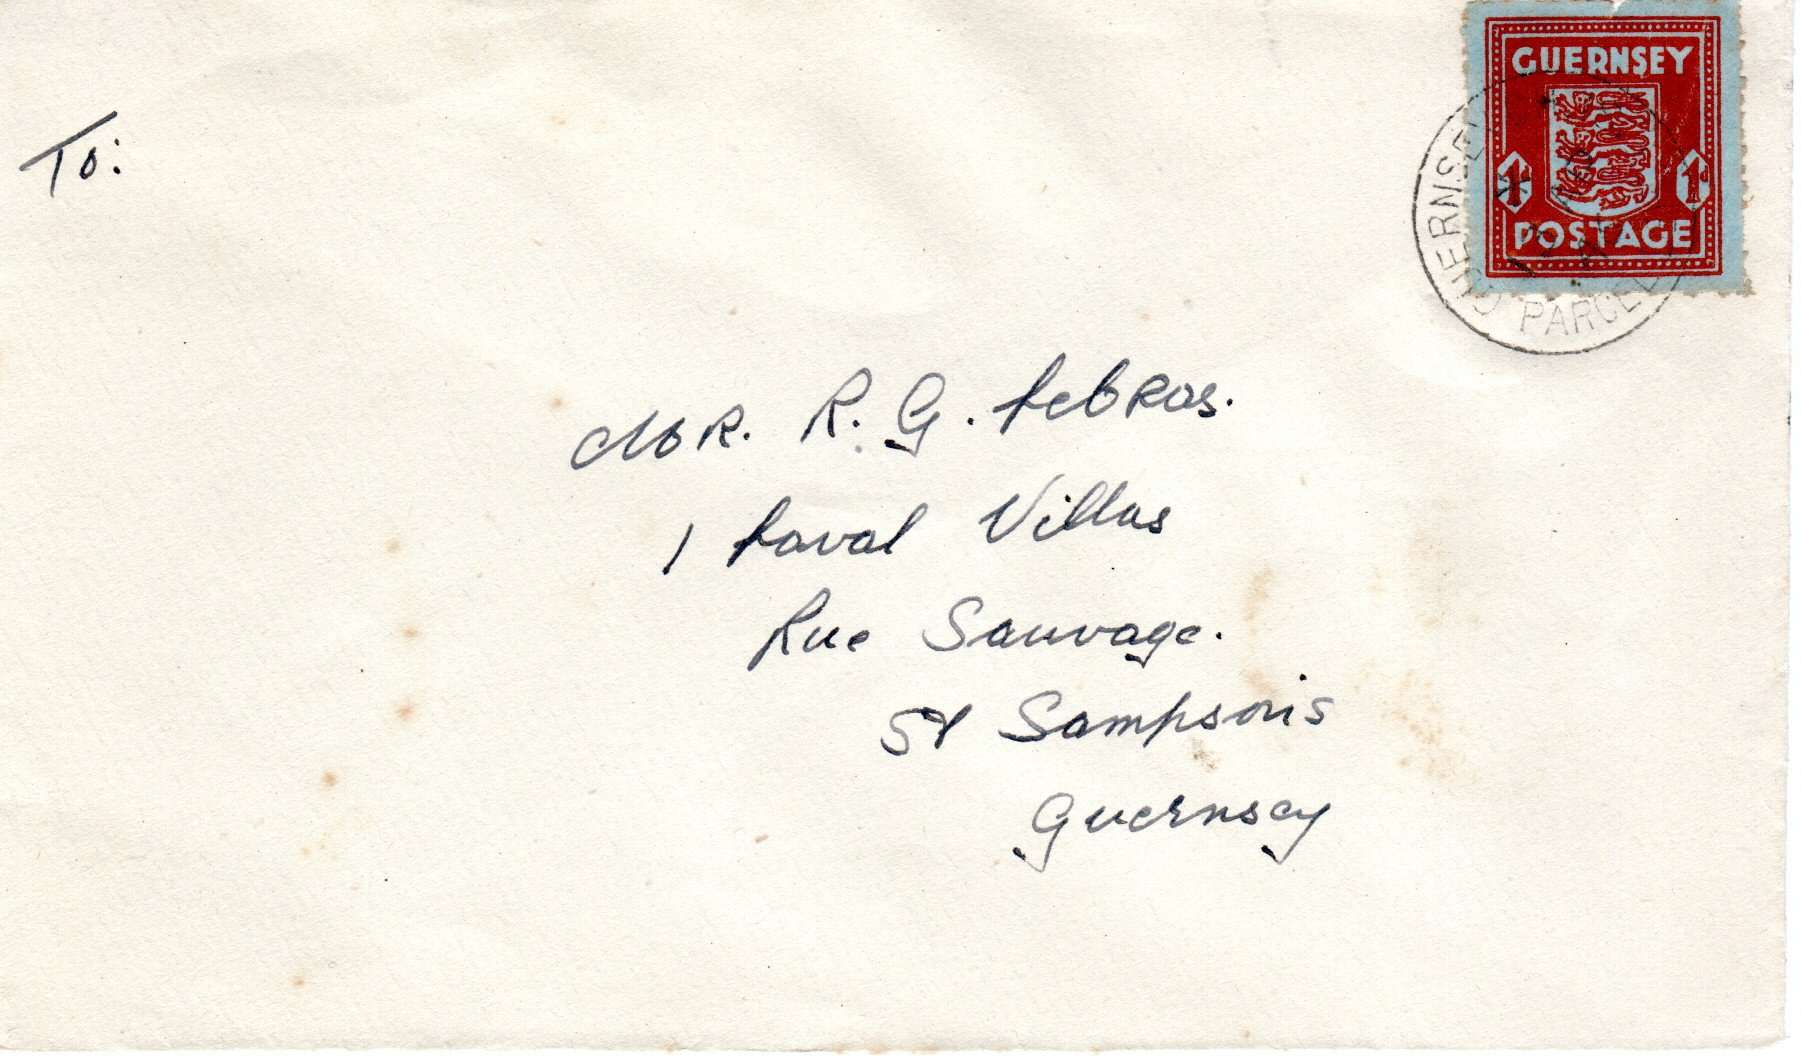 GUERNSEY
1d 1d
POSTAGE
GUERNSEY
PARCEL
To:
MR. R. G. LeBRas.
1 Laval Villas
Rue Sauvage.
St Sampsons
Guernsey